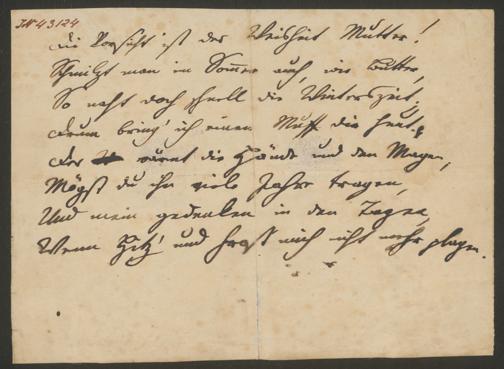 IN 43124
Die Vorsicht ist der Weisheit Mutter!
Schmilzt man im Sommer auch, wie Butter,
So naht doch schnell die Winterszeit;
Drum bring' ich einen Muff dir heut,
Der wärmt die Hände und den Magen,
Mögst du ihn viele Jahre tragen,
Und mein gedenken in den Tagen,
Wenn Hitz' und Frost mich nicht mehr plagen.